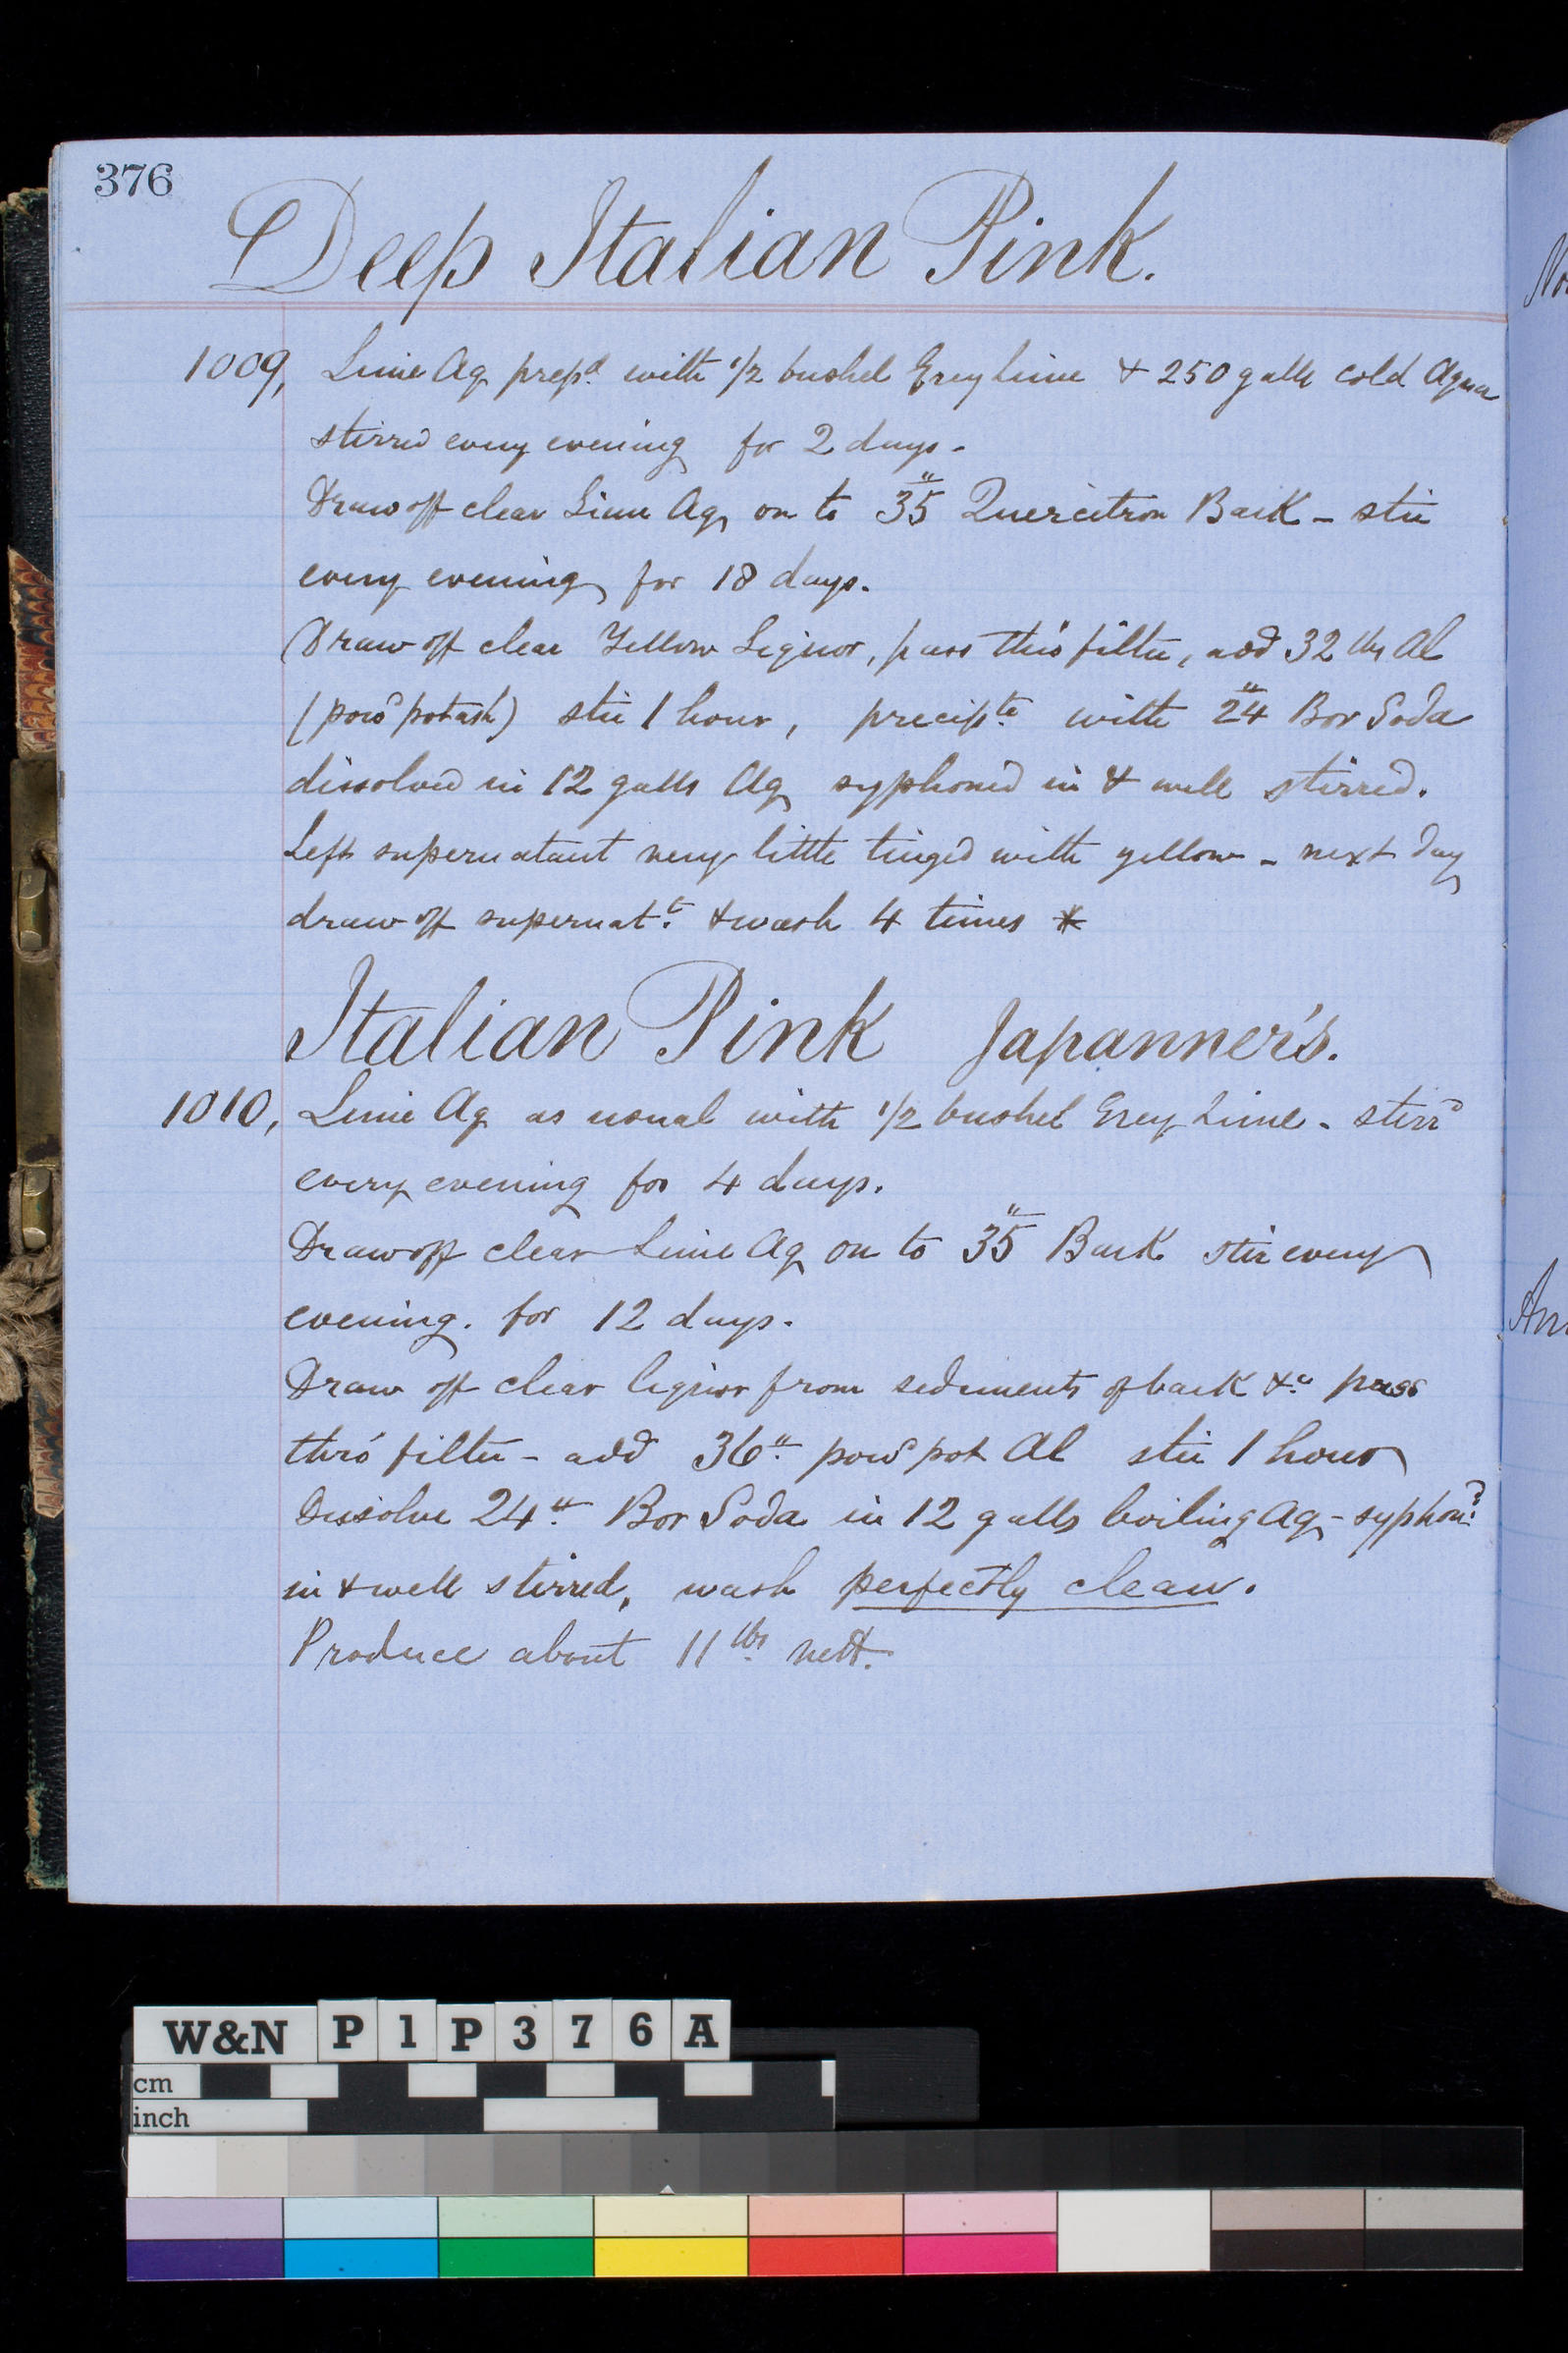 376
Deep Italian Pink.
1009, Lime Aq prepd. with 1/2 bushel Grey Lime & 250 galls cold Aqua
stirred every evening for 2 days -
Draw off clear Lime Aq on to 35" Quercitron Bark - stir
every evening for 18 days.
Draw off clear Yellow Liquor, pass thro' filter, add 32 lbs Al
(powd potash) stir 1 hour, precipte. with 24" Bor Soda
dissolved in 12 galls Aq syphoned in & well stirred.
Left supernatant very little tinged with yellow - next day
draw off supernatt. & wash 4 times *
Italian Pink Japanner's.
1010, Lime Aq as usual with 1/2 bushel Grey Lime - stirrd
every evening for 4 days.
Draw off clear Lime Aq on to 35" Bark stir every
evening. for 12 days.
Draw off clear liquor from sediments of bark &c. pass
thro' filter - add 36" powd pot Al stir 1 hour
Dissolve 24" Bor Soda in 12 galls boiling Aq - syphond.
in & well stirred, wash perfectly clean.
Produce about 11 lbs. nett.
No
An
W&N P1P376A
cm
inch